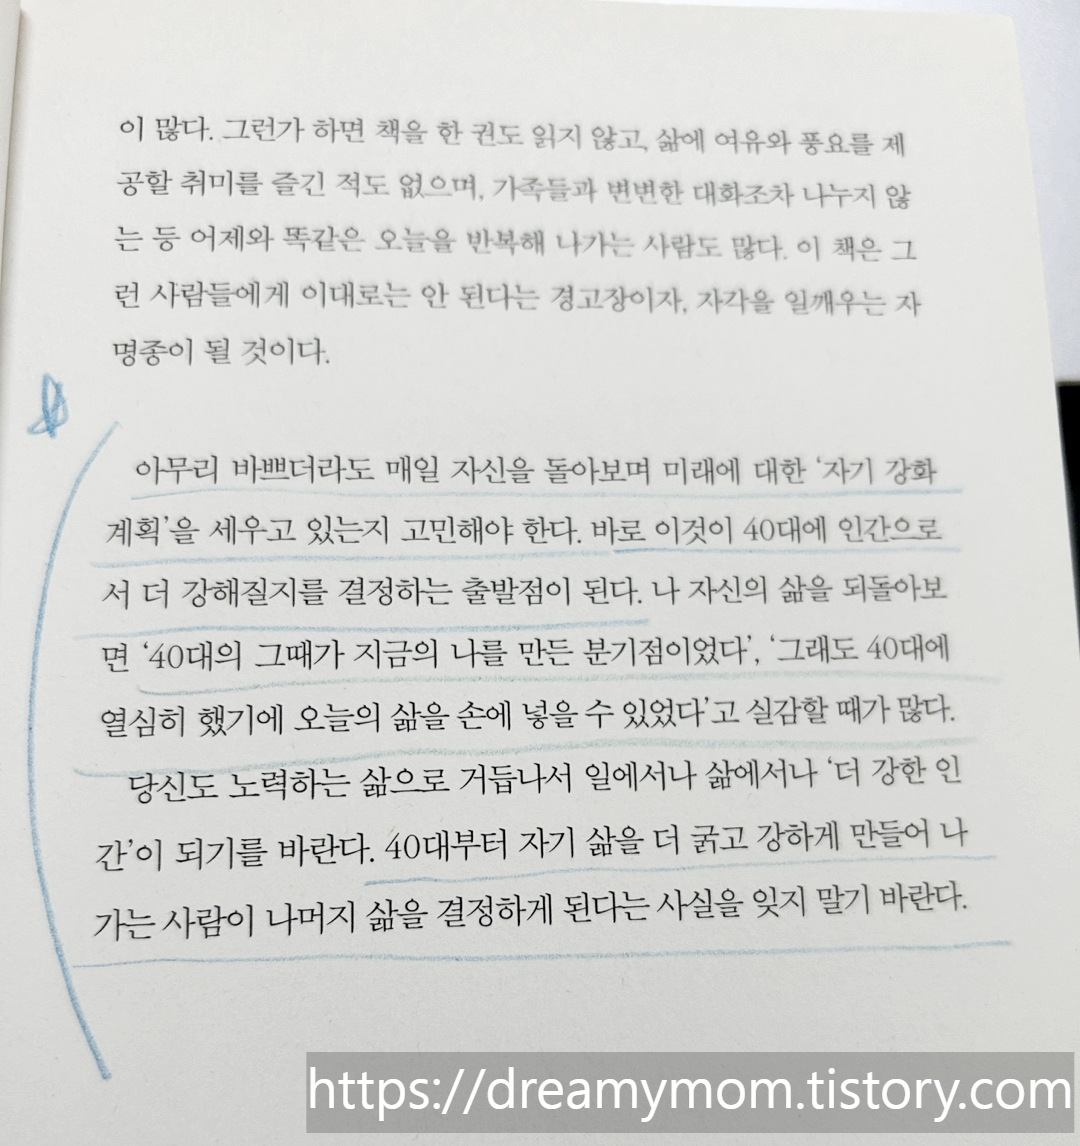 이 많다. 그런가 하면 책을 한 권도 읽지 않고, 삶에 여유와 풍요를 제
공할 취미를 즐긴 적도 없으며, 가족들과 변변한 대화조차 나누지 않
는 등 어제와 똑같은 오늘을 반복해 나가는 사람도 많다. 이 책은 그
런 사람들에게 이대로는 안 된다는 경고장이자, 자각을 일깨우는 자
명종이 될 것이다.
아무리 바쁘더라도 매일 자신을 돌아보며 미래에 대한 ‘자기 강화
계획’을 세우고 있는지 고민해야 한다. 바로 이것이 40대에 인간으로
서 더 강해질지를 결정하는 출발점이 된다. 나 자신의 삶을 되돌아보
면 ‘40대의 그때가 지금의 나를 만든 분기점이었다’, ‘그래도 40대에
열심히 했기에 오늘의 삶을 손에 넣을 수 있었다’고 실감할 때가 많다.
당신도 노력하는 삶으로 거듭나서 일에서나 삶에서나 ‘더 강한 인
간’이 되기를 바란다. 40대부터 자기 삶을 더 굵고 강하게 만들어 나
가는 사람이 나머지 삶을 결정하게 된다는 사실을 잊지 말기 바란다.
https://dreamymom.tistory.com